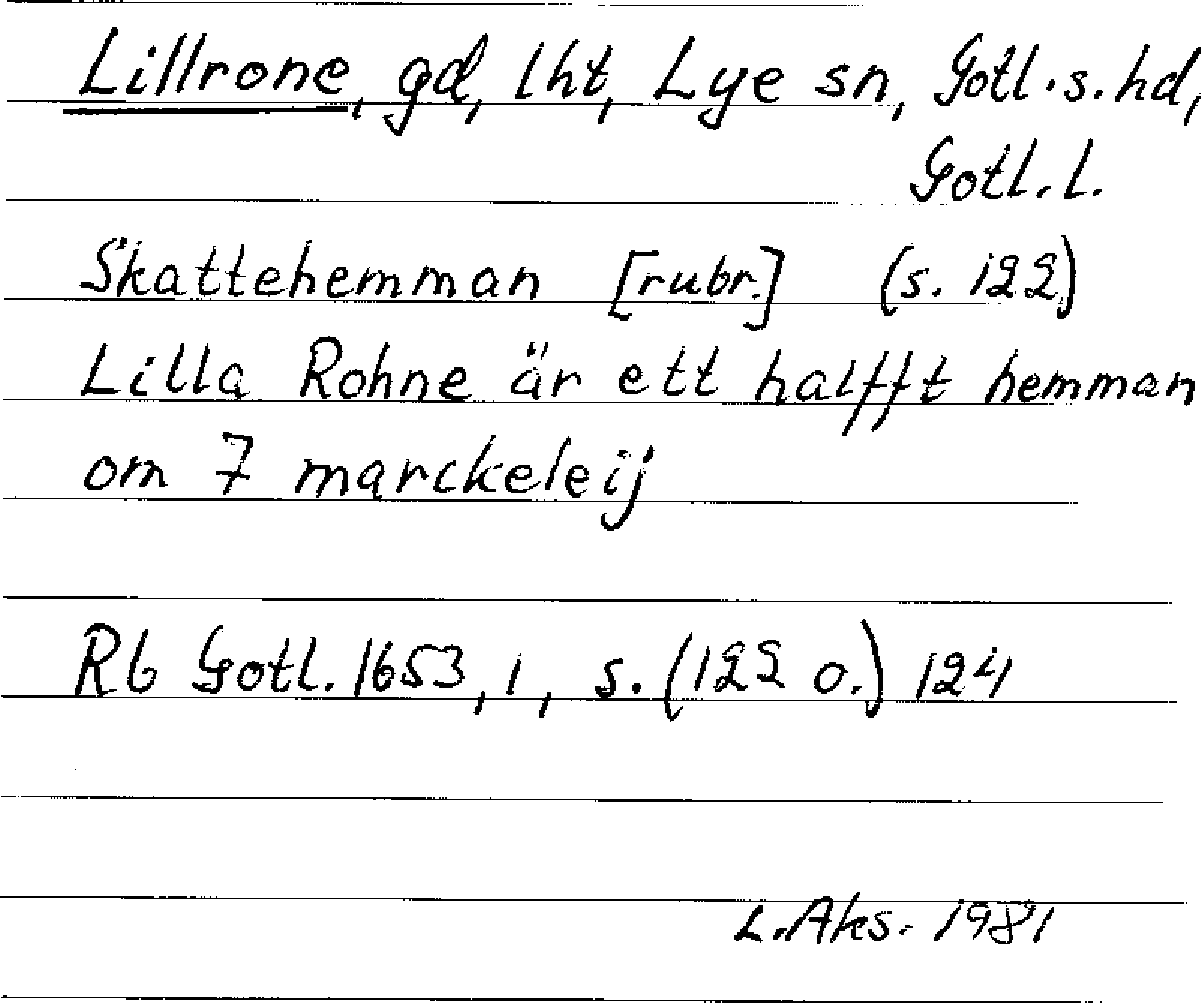 Lillrone, gd, lht, Lye sn, Gotl. s. hd,
Gotl. l.
Skattehemman [rubr.] (s. 122)
Lilla Rohne är ett halfft hemman
om 7 marckeleij
Rb Gotl. 1653, 1, s. (122 o.) 124
L. Aks. 1981